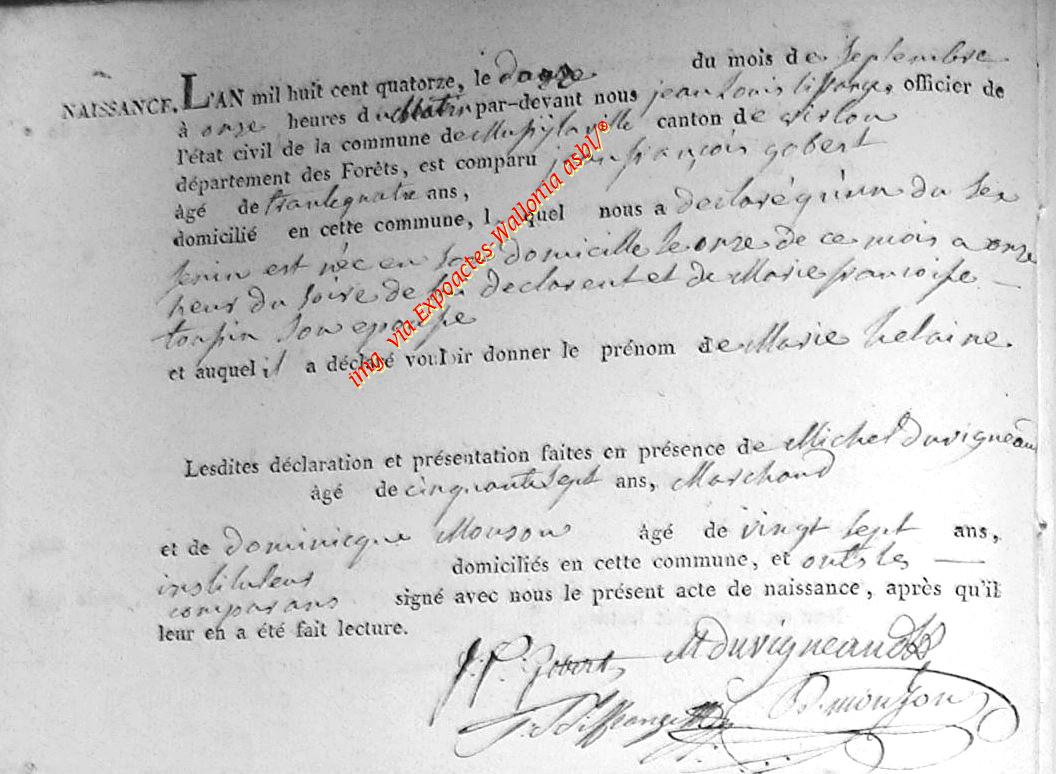 NAISSANCE. L'AN mil huit cent quatorze, le douze du mois de Septembre
à onze heures du Matin par-devant nous jean louis tiffange, officier de
l'état civil de la commune de Mussÿlaville canton de virton
département des Forêts, est comparu jean françois gobert
âgé de trantequatre ans,
domicilié en cette commune, lequel nous a declaré qu'inn du sex
femin est née en son domicille le onze de ce mois a onze
heur du soire de lui declarent et de Marie francoise
toupin son epouse
et auquel il a déclaré vouloir donner le prénom de Marie helaine.
Lesdites déclaration et présentation faites en présence de Michel Duvigneaud
âgé de cinquante sept ans, Marchand
et de Dominicque Monson âgé de vingt sept ans,
instituteur domiciliés en cette commune, et onts les
comparans signé avec nous le présent acte de naissance, après qu'il
leur en a été fait lecture.
J. F. Gobert M Duvigneaud
J. L. Tiffange D. monson
img. via Expoactes-Wallonia asbl/®